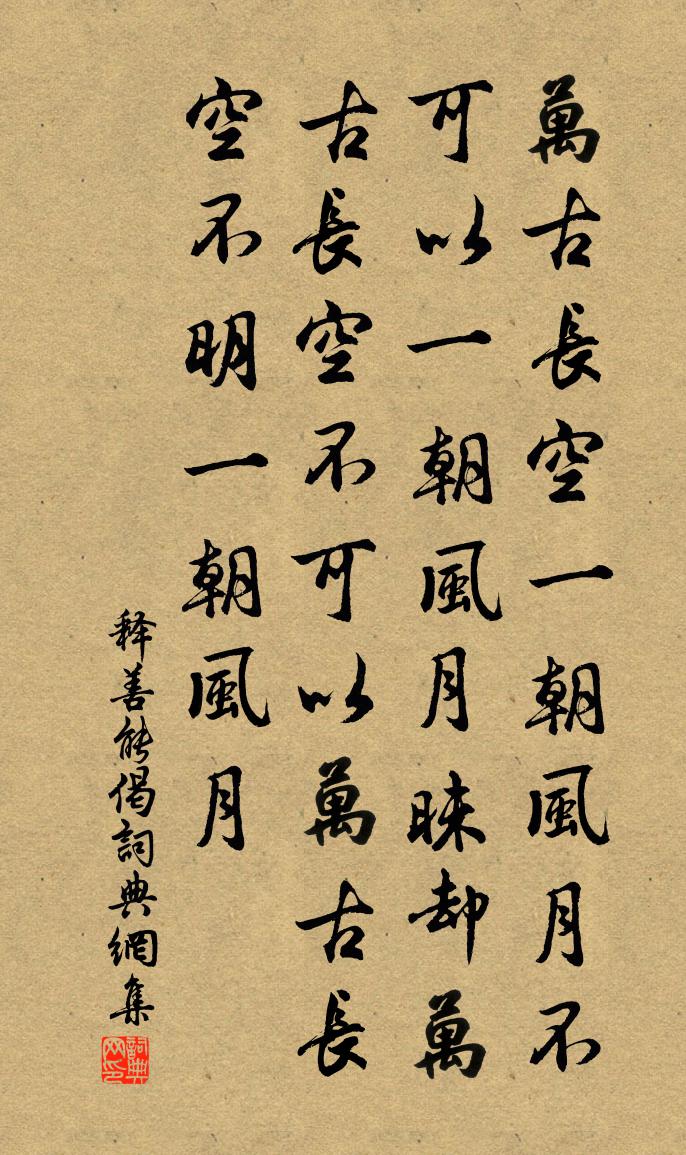 萬古長空一朝風月不
可以一朝風月昧却萬
古長空不可以萬古長
空不明一朝風月
释善能偈詞典網集
詞典网印